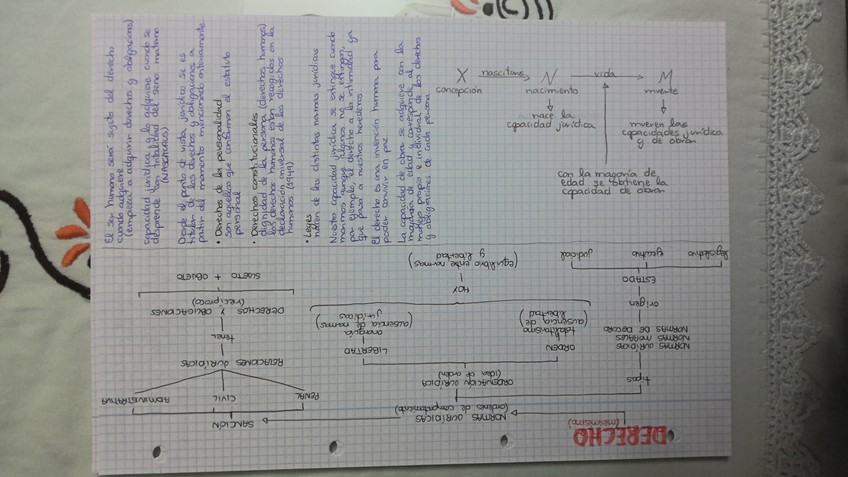 DERECHO
(mecanismo)
NORMAS JURÍDICAS
(ordenes de comportamiento)
SANCIÓN
PENAL
CIVIL
ADMINISTRATIVA
RELACIONES JURÍDICAS
tienen
DERECHOS Y OBLIGACIONES
(recíproco)
SUJETO + OBJETO
tipos
NORMAS JURÍDICAS
NORMAS MORALES
NORMAS DE DECORO
origen
ESTADO
legislativo
ejecutivo
judicial
ORDENACIÓN JURÍDICA
(idea de orden)
ORDEN
totalitarismo
(ausencia de
libertad)
LIBERTAD
anarquía
(ausencia de normas
jurídicas)
HOY
(equilibrio entre normas
y libertad)
El ser humano será sujeto del derecho
cuando adquiere
(empieza a adquirir derechos y obligaciones)
capacidad jurídica y la adquiere cuando se
desprende con totalidad del seno materno
(NASCITURUS)
Desde el punto de vista jurídico se es
titular de los derechos y obligaciones a
partir del momento mencionado anteriormente.
• Derechos de la personalidad
son aquellos que conforman el estatuto
personal
• Derechos constitucionales
dignidad de la persona (derechos humanos)
los derechos humanos están recogidos en la
declaración universal de los derechos
humanos (1949)
• Leyes
nacen de las distintas normas jurídicas
Nuestra capacidad jurídica se extingue cuando
morimos, aunque algunos no se extinguen,
por ejemplo, el derecho a la intimidad ya
que pasa a nuestros herederos
El derecho es una invención humana para
poder convivir en paz
La capacidad de obrar se adquiere con la
mayoría de edad y corresponde al
manejo propio e individual de los derechos
y obligaciones de cada persona
X nasciturus N vida M
concepción nacimiento muerte
nace la
capacidad jurídica
mueren las
capacidades jurídica
y de obrar
con la mayoría de
edad se obtiene la
capacidad de obrar